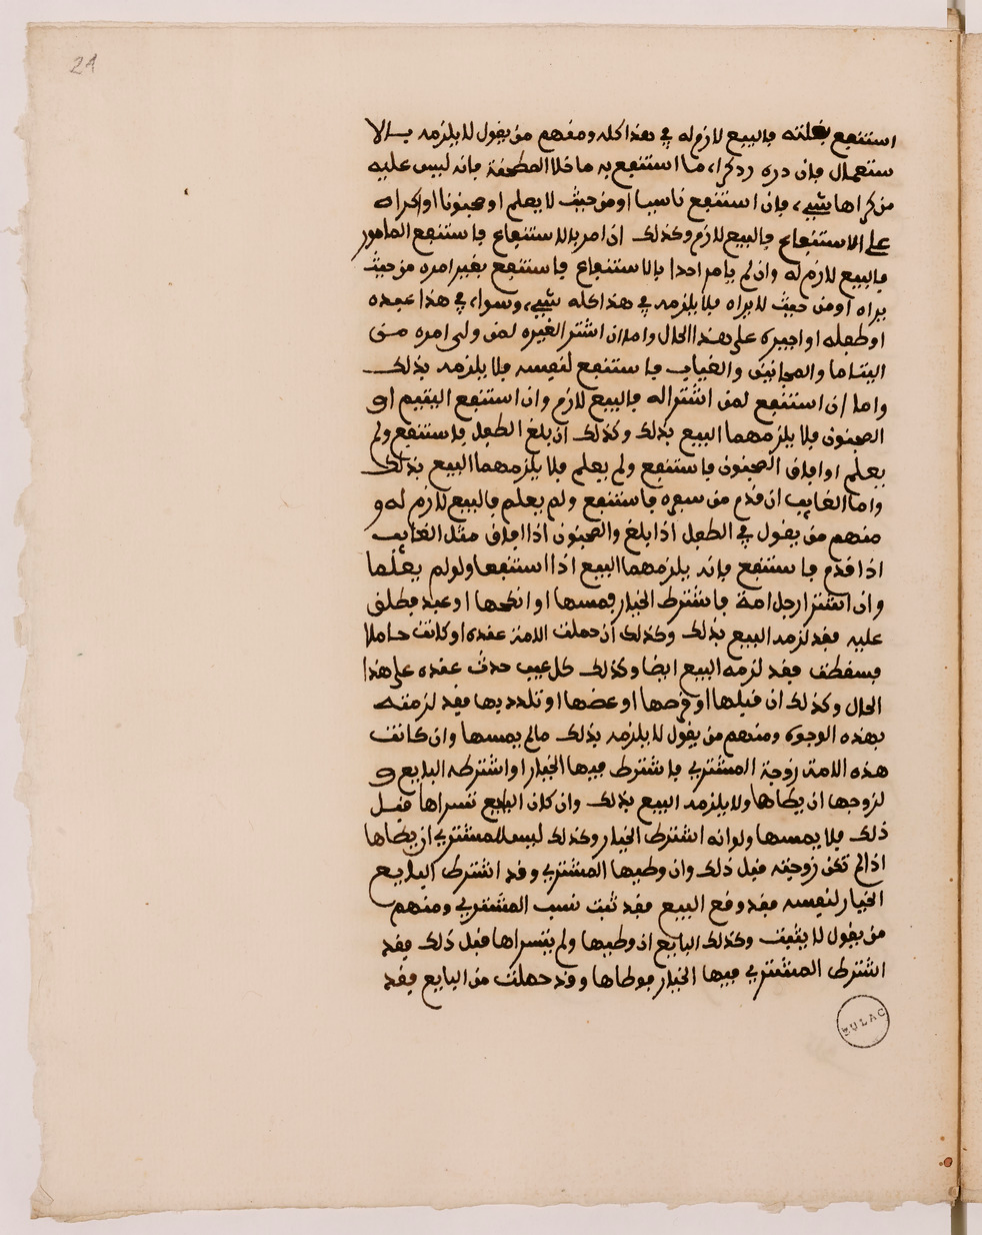 24
استنفع بغلته فالبيع لازم له في هذا كله ومنهم من يقول لا يلزمه بالا
ستعمال فان دره رد كراء ما استنفع به ما خلا المصحف فانه ليس عليه
من كراها شيء، فإن استنفع ناسيا او من حيث لا يعلم او مجنونا او اكراه
على الاستنفاع فالبيع لازم وكذلك ان امر بالاستنفاع فاستنفع المامور
فالبيع لازم له وان لم يامر احدا بالاستنفاع فاستنفع بغير امره من حيث
يراه او من حيث لا يراه فلا يلزمه في هذا كله شيء، وسواء في هذا عبده
او طفله او اجيره على هذا الحال واما ان اشترا لغيره لمن ولي امره من
اليتاما والمجانين والغياب فاستنفع لنفسه فلا يلزمه بذلك
واما ان استنفع لمن اشترا له فالبيع لازم وان استنفع اليتيم او
المجنون فلا يلزمهما البيع بذلك وكذلك ان بلغ الطفل فاستنفع ولم
يعلم او افاق المجنون فاستنفع ولم يعلم فلا يلزمهما البيع بذلك
واما الغايب ان قدم من سفره فاستنفع ولم يعلم فالبيع لازم له و
منهم من يقول في الطفل اذا بلغ والمجنون اذا افاق مثل الغايب
اذا قدم فاستنفع فانه يلزمهما البيع اذا استنفعا ولو لم يعلما
وان اشترا رجل امة فاشترط الخيار فمسها او انكحها او عبد فطلق
عليه فقد لزمه البيع بذلك وكذلك ان حملت الامة عنده او كانت حاملا
فسقطت فقد لزمه البيع ايضا وكذلك كل عيب حدث عنده على هذا
الحال وكذلك ان قبلها او قرصها او عضها او تلذذ بها فقد لزمته
بهذه الوجوه ومنهم من يقول لا يلزمه بذلك مالم يمسها وان كانت
هذه الامة زوجة المشتري فاشترط فيها الخيار او اشترطه البايع و
لزوجها ان يطاها ولا يلزمه البيع بذلك وان كان البايع تسراها قبل
ذلك فلا يمسها ولو انه اشترط الخيار وكذلك ليس للمشتري ان يطاها
اذا لم تكن زوجته قبل ذلك وان وطيها المشتري وقد اشترط البايع
الخيار لنفسه فقد وقع البيع فقد ثبت نسب المشتري ومنهم
من يقول لا يثبت وكذلك البايع ان وطيها ولم يتسراها قبل ذلك فقد
اشترط المشتري فيها الخيار فوطاها وقد حملت من البايع فقد
BULAC